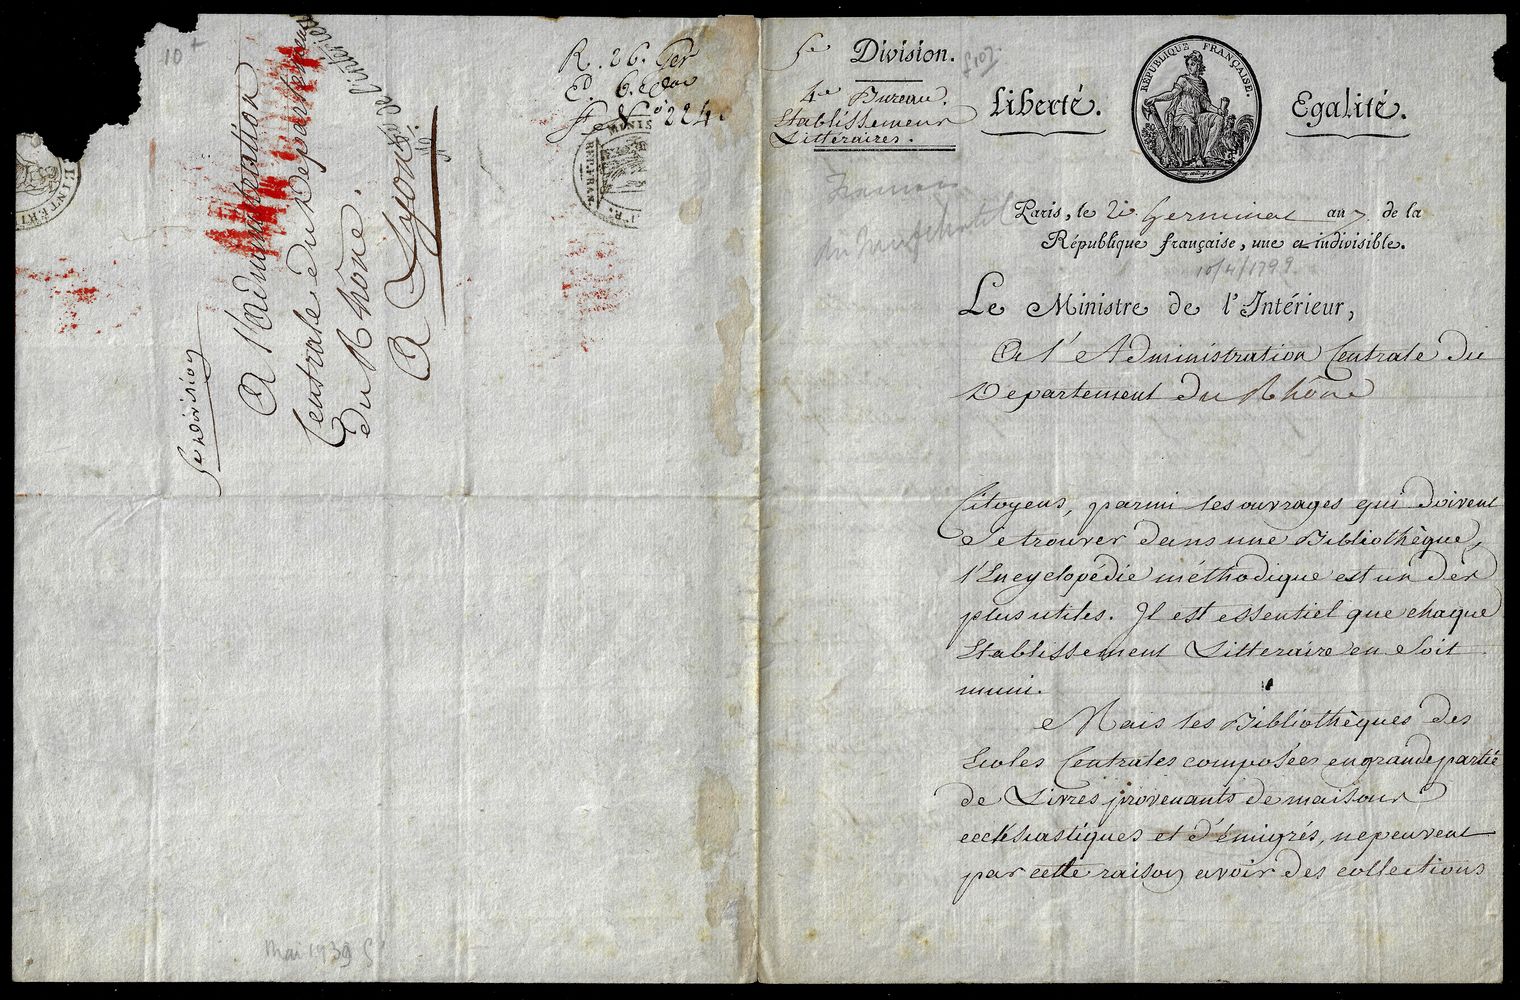 10
5e Division
A l'administration
Centrale du Departement
du Rhône.
A Lyon
R. 26. Ger
N° 224
MINIS
REP. FRAN.
L'INTERI
Mai 1939
5e Division.
4e Bureau.
Etablissements
Litteraires.
Liberté.
RÉPUBLIQUE FRANÇAISE.
Egalité.
Paris, le 21 Germinal an 7 de la
République française, une et indivisible.
10/4/1799
Le Ministre de l'Intérieur,
A l'Administration Centrale du
Departement du Rhône
Citoyens, parmi les ouvrages qui doivent
se trouver dans une Bibliothèque,
l'Encyclopédie méthodique est un des
plus utiles. Il est essentiel que chaque
Etablissement Litteraire en soit
muni.
Mais les Bibliothèques des
Ecoles Centrales composées en grande partie
de Livres provenants de maisons
ecclésiastiques et d'émigrés, ne peuvent
par cette raison avoir des collections